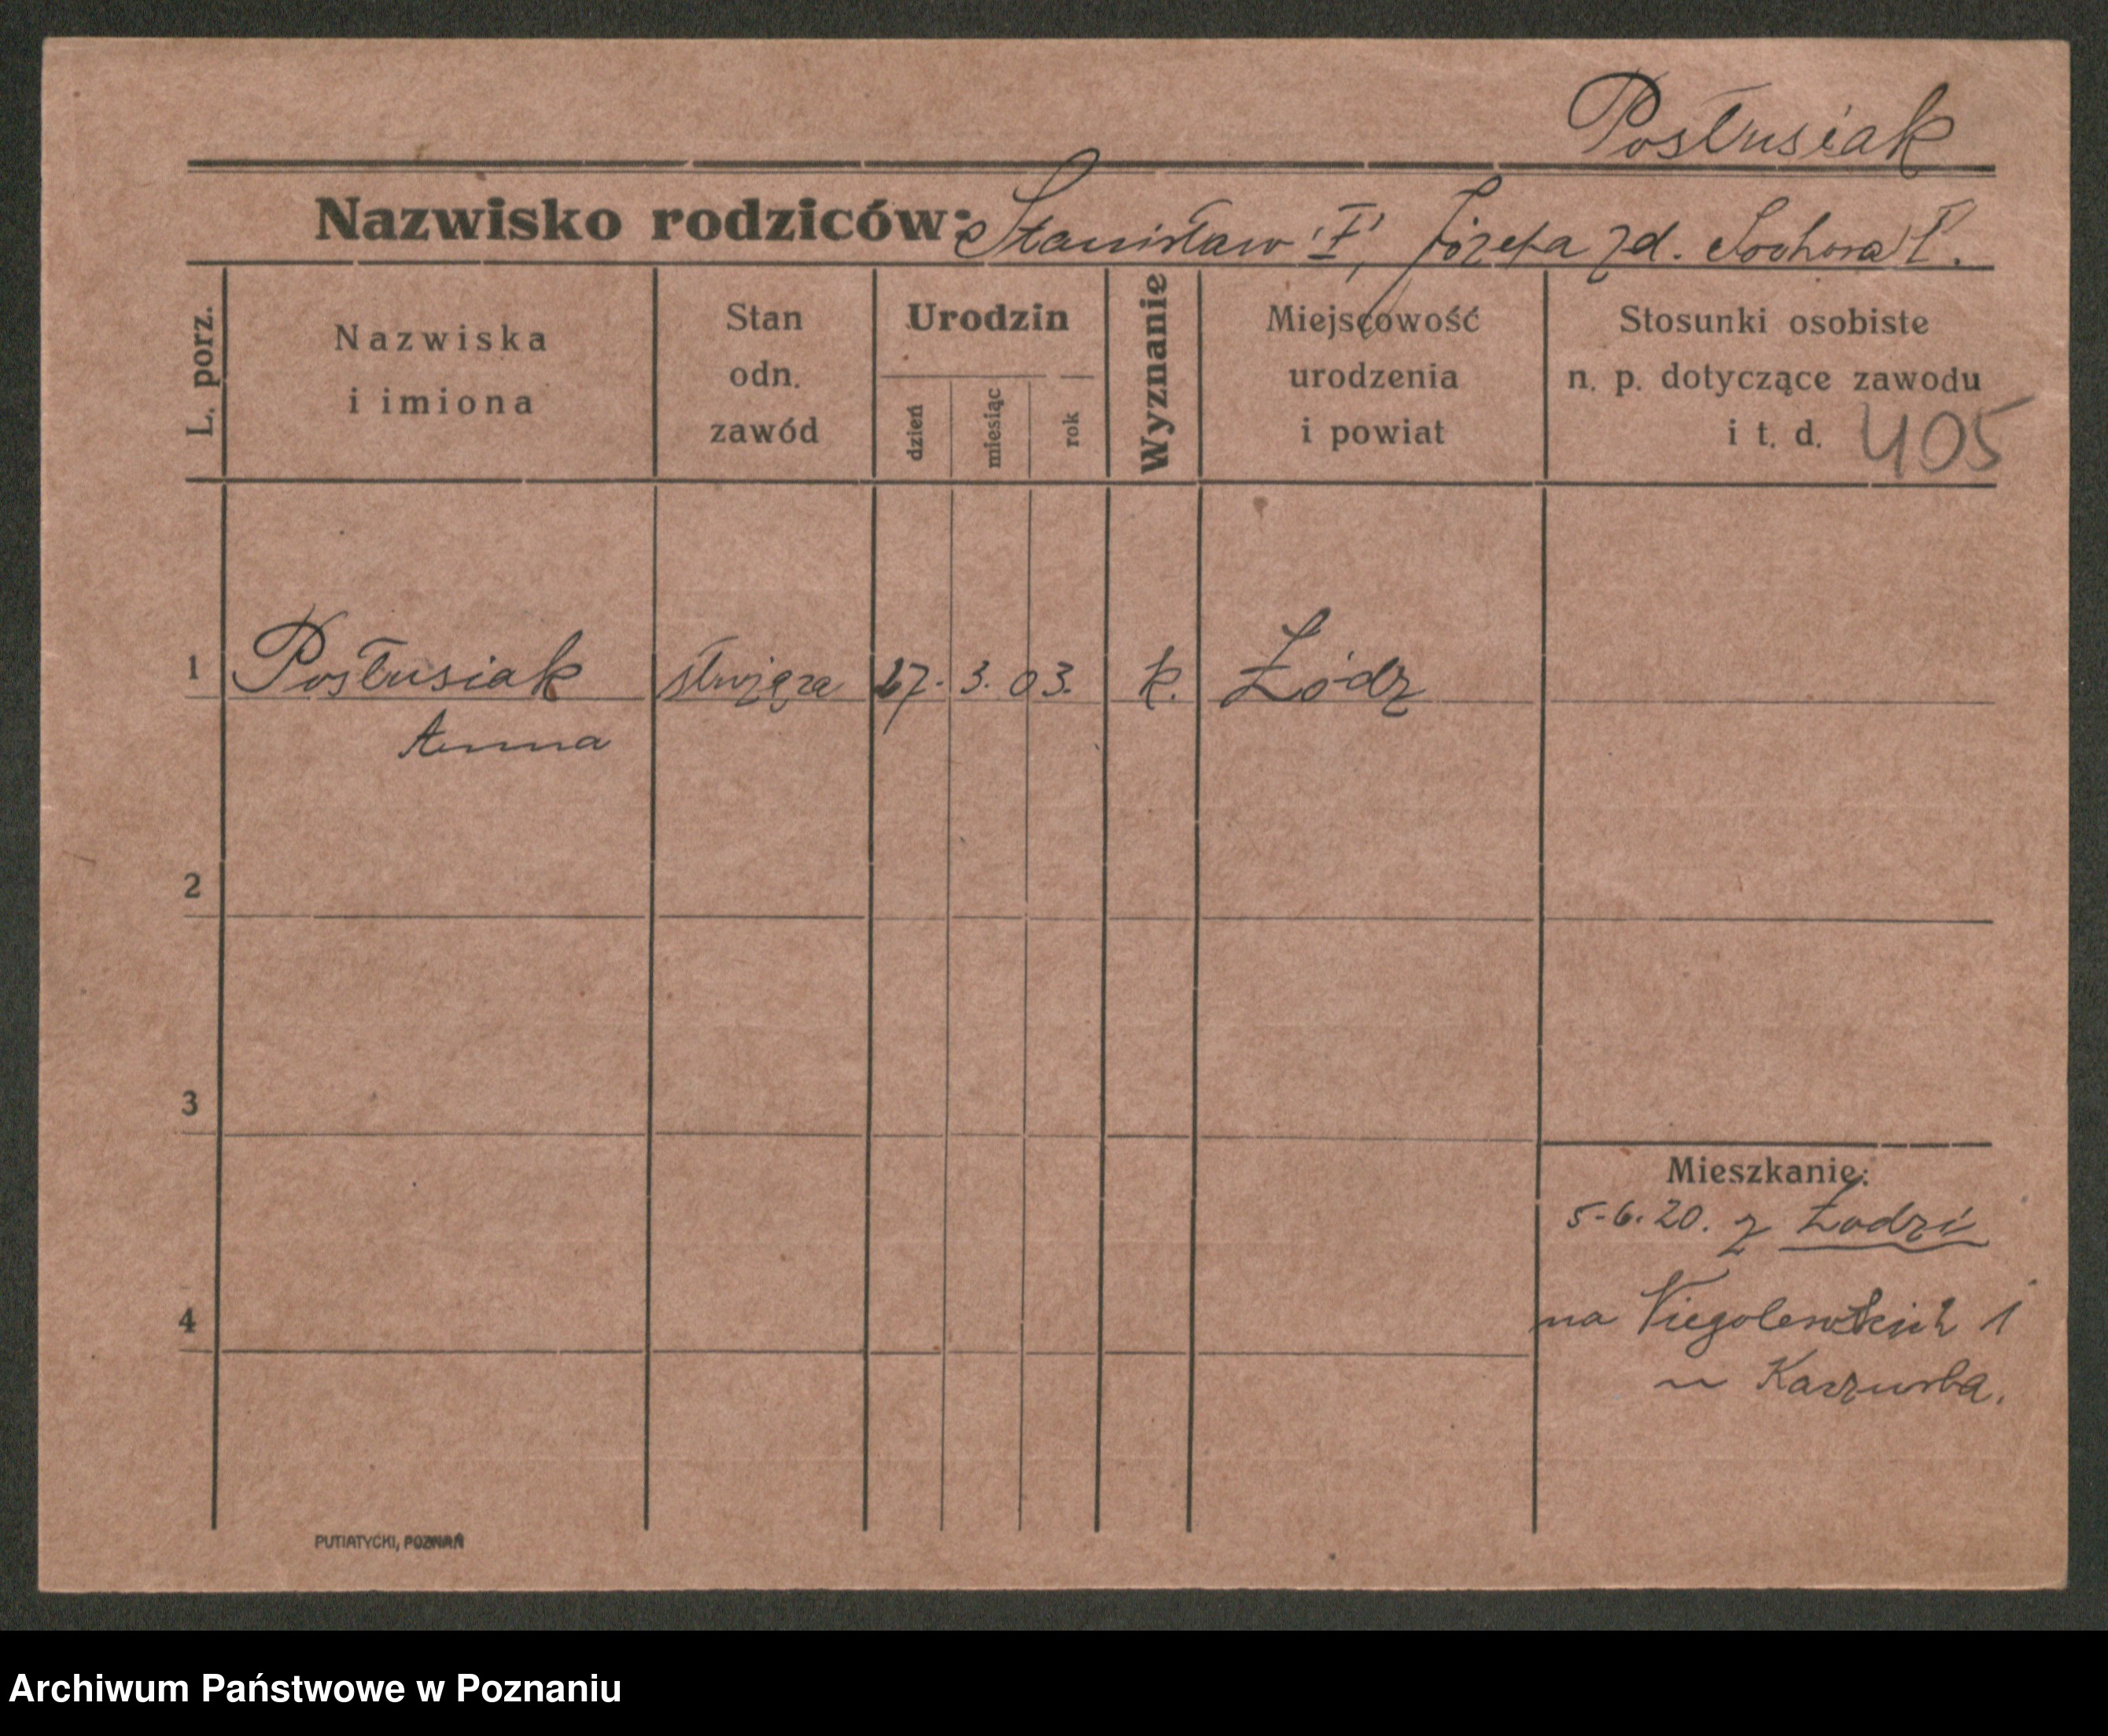 Posłusiak
Nazwisko rodziców: Stanisław Józefa zd. Sochora
L. porz.
Nazwiska
i imiona
Stan
odn.
zawód
Urodzin
dzień
miesiąc
rok
Wyznanie
Miejscowość
urodzenia
i powiat
Stosunki osobiste
n. p. dotyczące zawodu
i t. d. 405
1 Posłusiak służąca 27. 3. 03. k. Łódz
Anna
2
3
Mieszkanie:
5-6.20. z Łodzi
4
na Niegolewskich 1
u
PUTIATYCKI, POZNAŃ
Archiwum Państwowe w Poznaniu